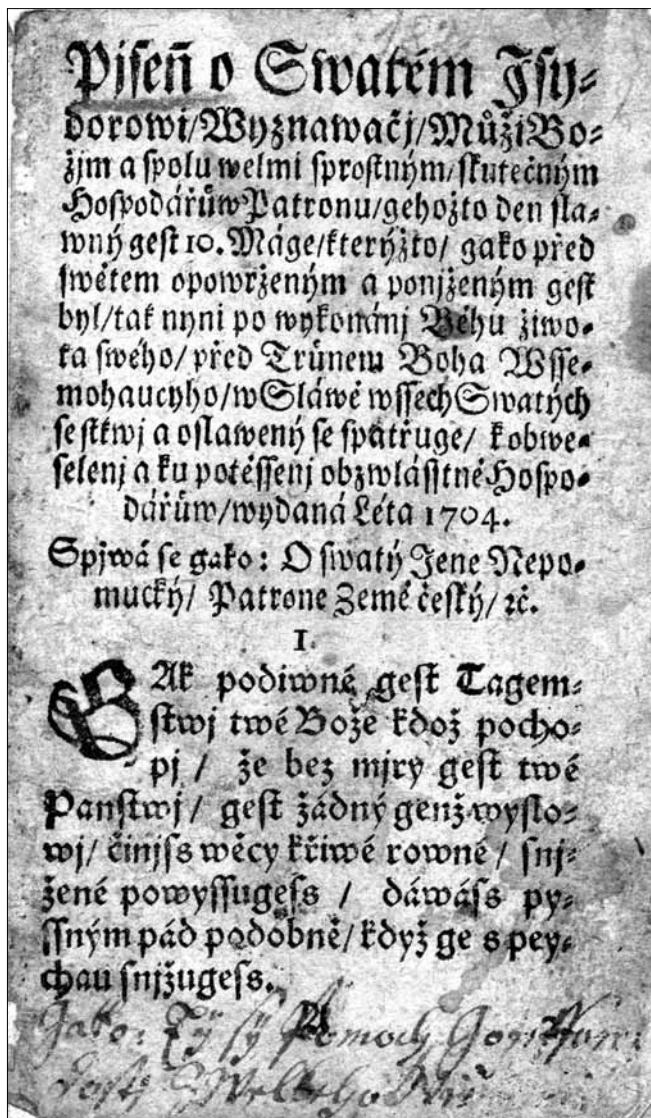 Pjseň o Swatém Jsy-
dorowi/Wyznawačj/Můži Bo-
žjm a spolu welmi sprostným/skutečným
Hospodářůw Patronu/gehožto den sla-
wný gest 10. Máge/kterýžto/ gako před
swětem opowrženým a ponjženým gest
byl/tak nyni po wykonánj Běhu žiwo-
ta swého/ před Trůnem Boha Wsse-
mohaucyho/w Sláwě wssech Swatých
se stkwj a oslawený se spatřuge/ k obwe-
selenj a ku potěssenj obzwlásstně Hospo-
dářůw/wydaná Léta 1704.
Spjwá se gako: O swatý Jene Nepo-
mucký/ Patrone Země český/ ꝛč.
I.
GAk podiwné gest Tagem-
stwj twé Bože kdož pocho-
pj / že bez mjry gest twé
Panstwj/ gest žádný genž wyslo-
wj/ činjss wěcy křiwé rowné / snj-
žené powyssugess / dáwáss py-
ssným pád podobně/ když ge s pey-
chau snjžugess.
Jako: Ty sy Pomocy